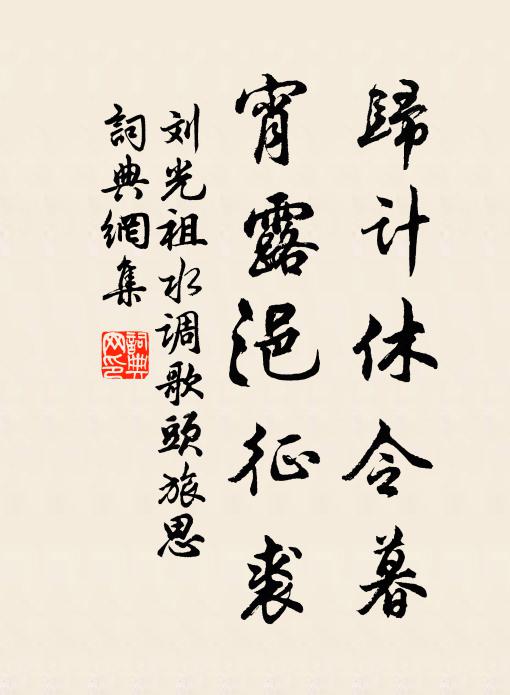 歸计休令暮
宵露浥征裘
刘光祖水调歌頭旅思
詞典網集
詞典网印